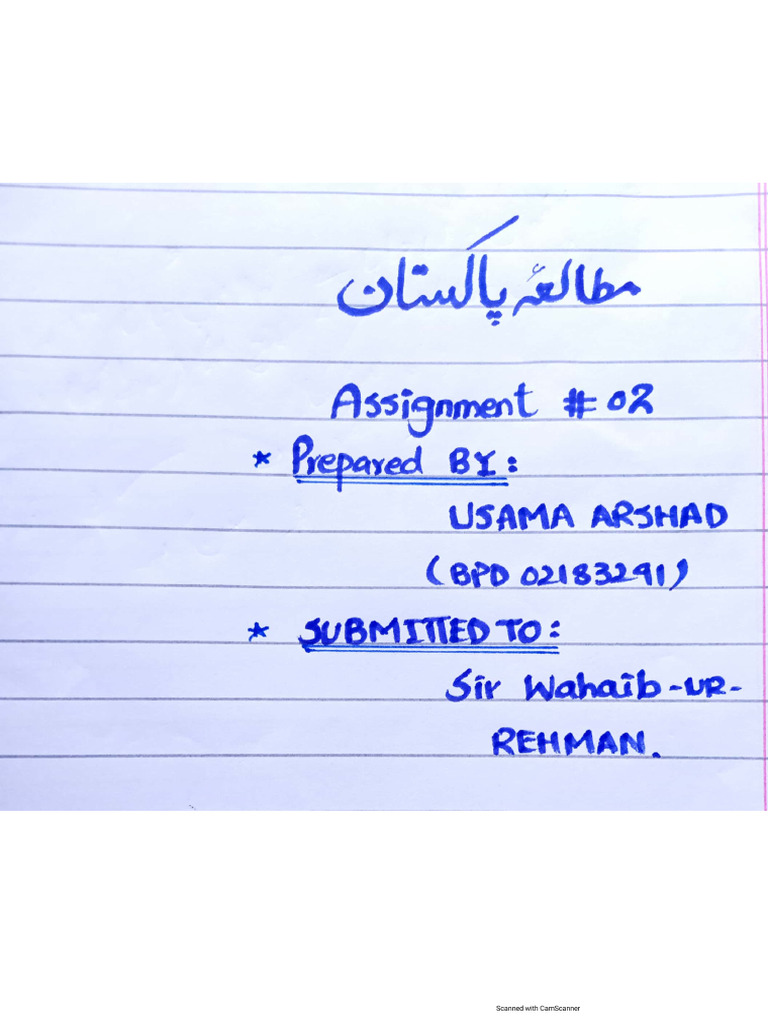 مطالعۂ پاکستان
Assignment # 02
* Prepared BY:
USAMA ARSHAD
(BPD 02183291)
* SUBMITTED TO:
Sir Wahaib-UR-
REHMAN.
Scanned with CamScanner